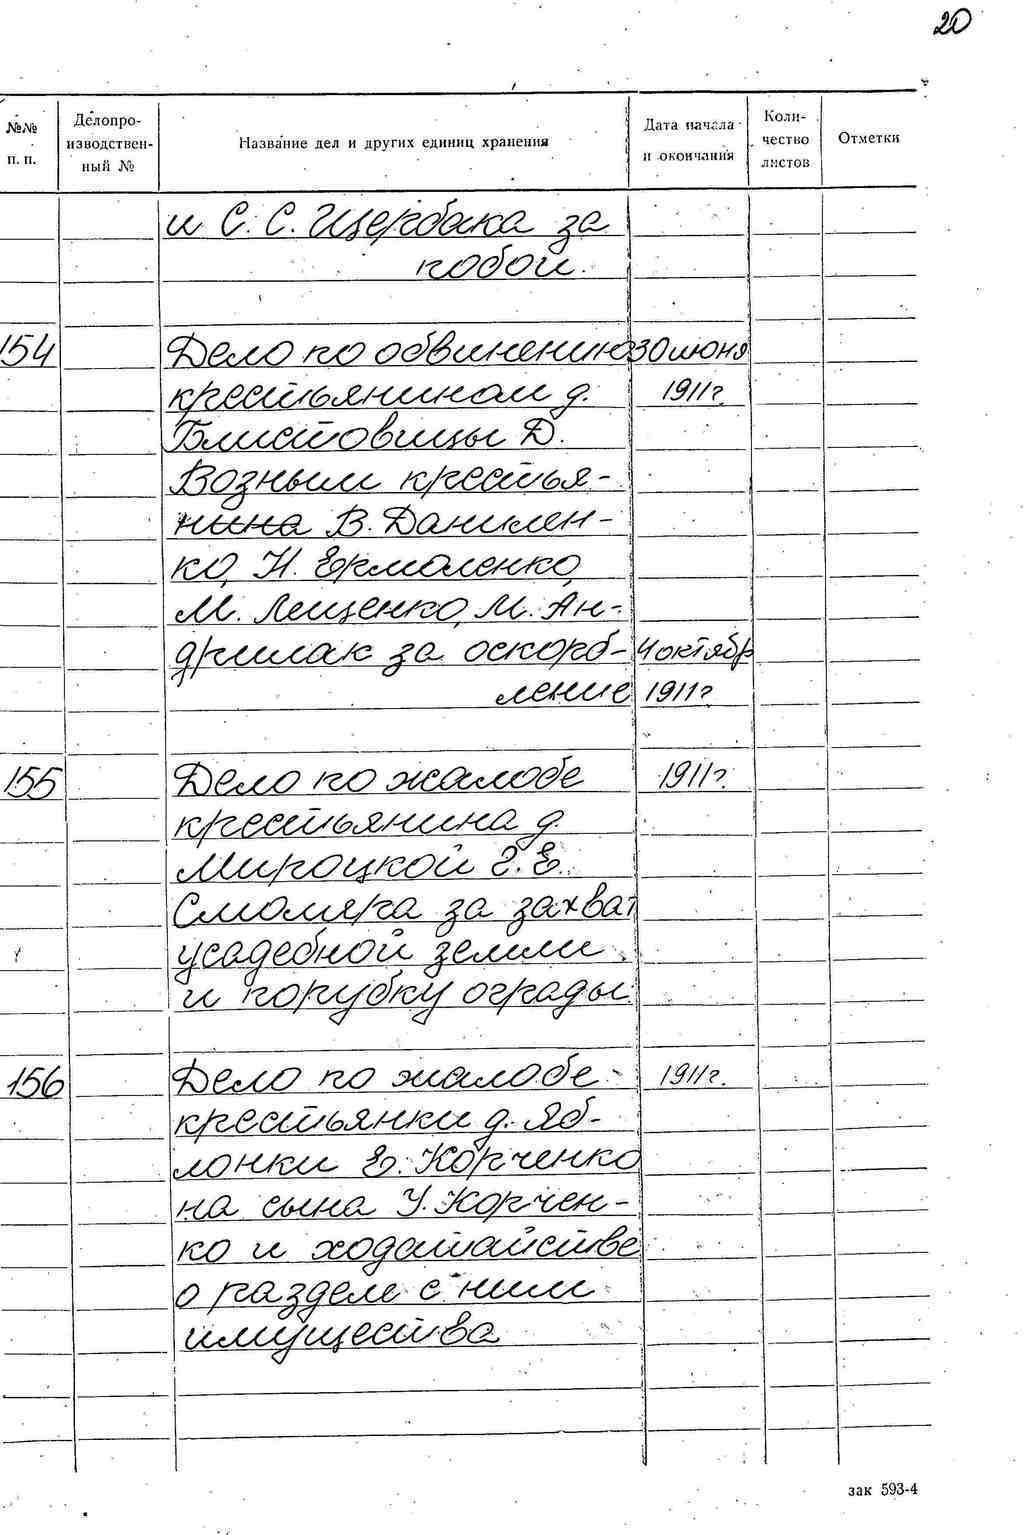 20
№№ п. п.
Делопро-
изводствен-
ный №
Название дел и других единиц хранения
Дата начала
и окончания
Коли-
чество
листов
Отметки
и С. С. Щербака за
побои.
154 Дело по обвинению 30 июня
крестьянином д. 1911г.
Блиставицы Д.
Возным крестья-
нина В. Данилен-
ко, Н. Ермоленко,
М. Лещенко, М. Ан-
дриак за оскорб- 4 октябр
ление 1911г
155 Дело по жалобе 1911г.
крестьянина д.
Мироцкой Г. Е.
Смоляра за захват
усадебной земли
и порубку ограды
156 Дело по жалобе 1911г.
крестьянки д. Яб-
лонки Е. Корченко
на сына У. Корчен-
ко и ходатайстве
о разделе с ним
имущества
зак 593-4